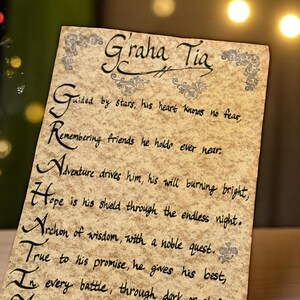 G'raha Tia
Guided by stars, his heart knows no fear,
Remembering friends he holds ever near.
Adventure drives him, his will burning bright,
Hope is his shield through the endless night.
Archon of wisdom, with a noble quest.
True to his promise, he gives his best,
In every battle, through dark or